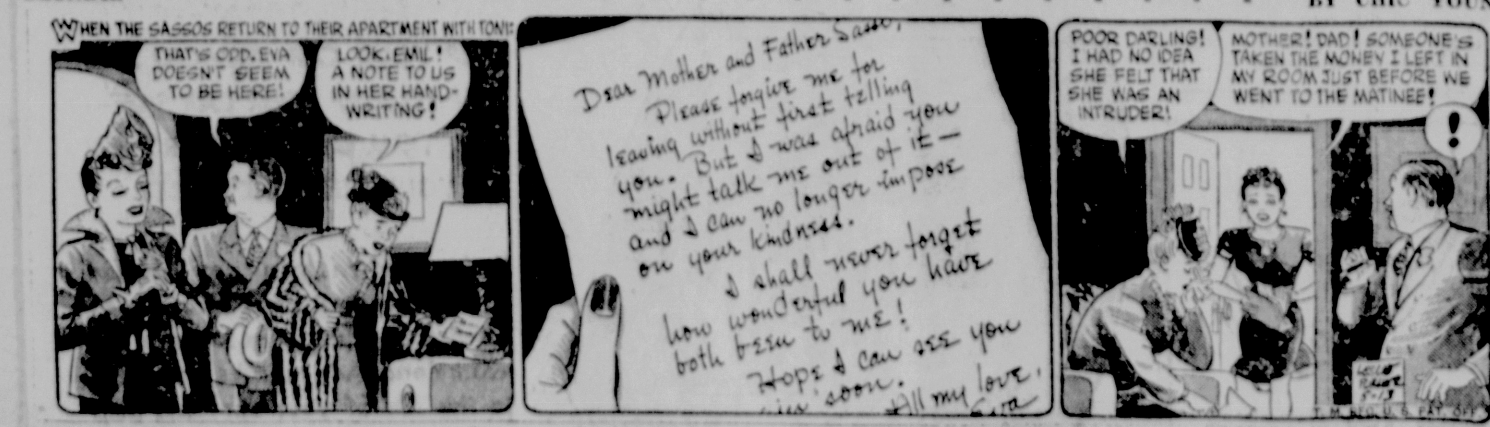 WHEN THE SASSOS RETURN TO THEIR APARTMENT WITH TONI:
THAT'S ODD. EVA
DOESN'T SEEM
TO BE HERE!
LOOK, EMIL!
A NOTE TO US
IN HER HAND-
WRITING!
Dear Mother and Father Sasso,
Please forgive me for
leaving without first telling
you. But I was afraid you
might talk me out of it—
and I can no longer impose
on your kindness.
I shall never forget
how wonderful you have
both been to me!
Hope I can see you
soon.
All my love,
Eva
BY CHIC
POOR DARLING!
I HAD NO IDEA
SHE FELT THAT
SHE WAS AN
INTRUDER!
MOTHER! DAD! SOMEONE'S
TAKEN THE MONEY I LEFT IN
MY ROOM JUST BEFORE WE
WENT TO THE MATINEE!
!
5-13
T. M. REG. U. S. PAT. OFF.